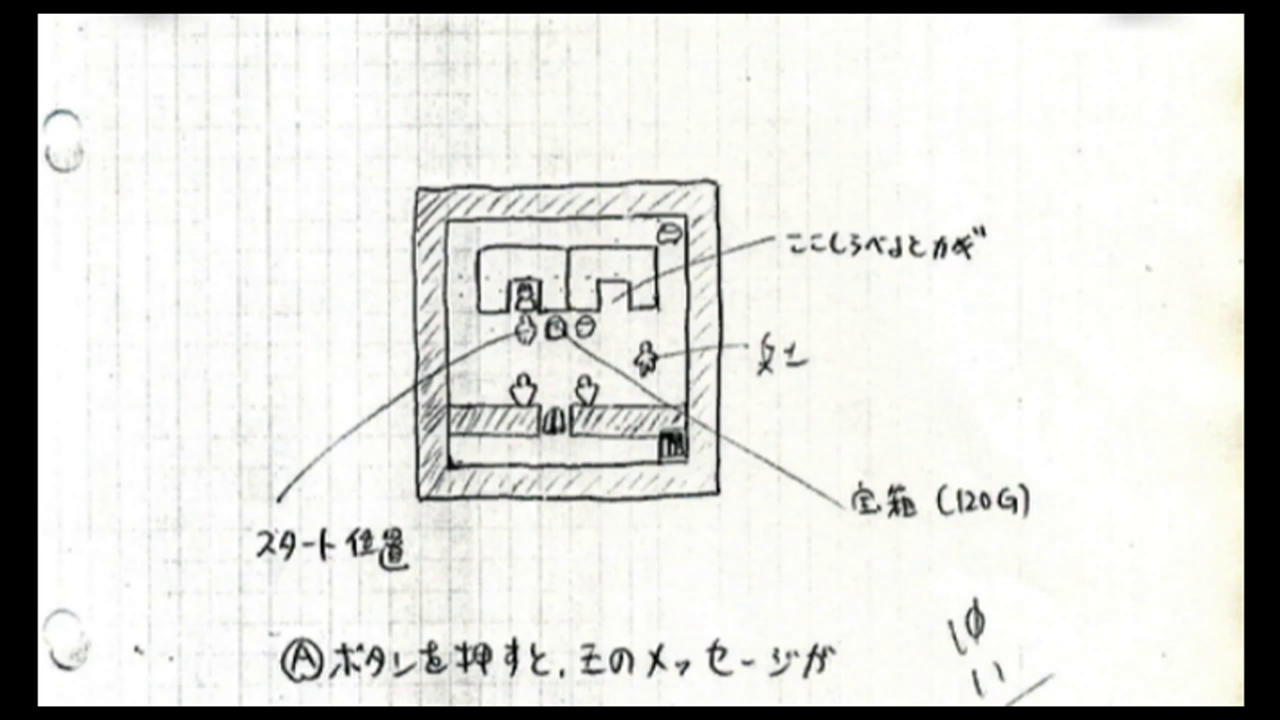 ここしらべるとカギ
兵士
宝箱 (120G)
スタート位置
Ⓐボタンを押すと、王のメッセージが